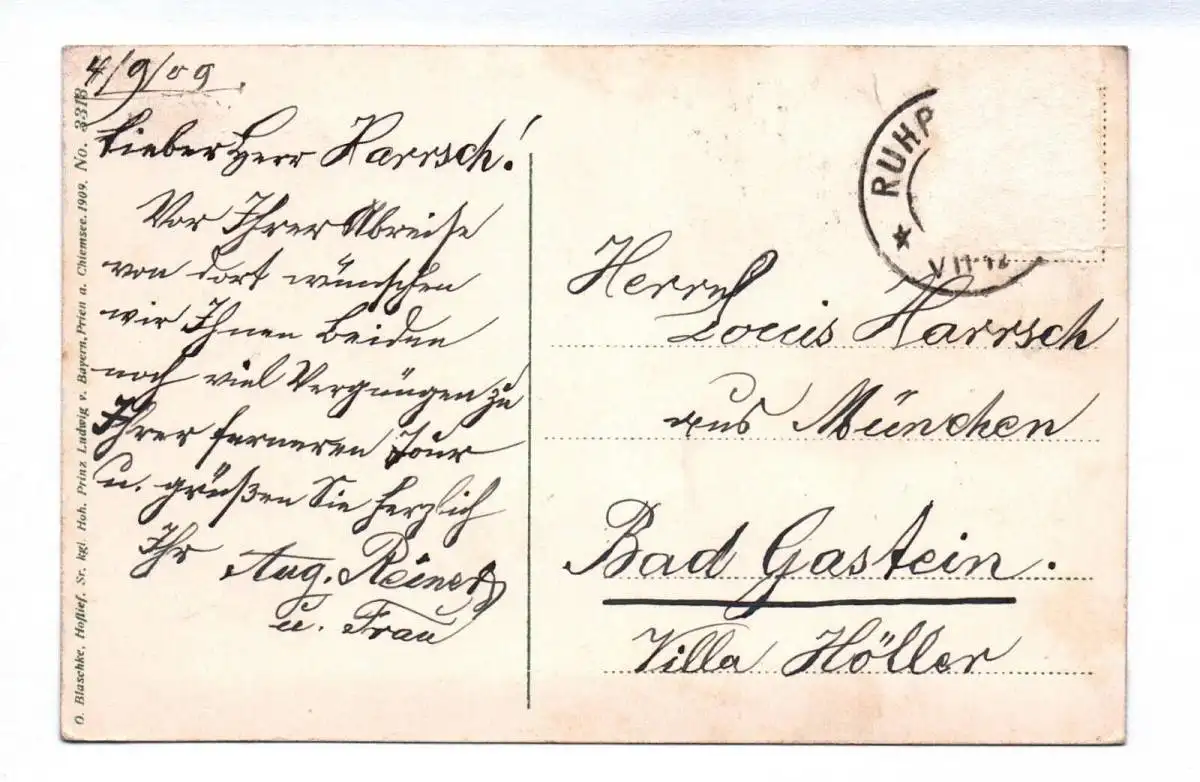 4/9/09.
Lieber Herr Harrsch!
Vor Ihrer Abreise
von dort wünschen
wir Ihnen beiden
noch viel Vergnügen zu
Ihrer ferneren Tour
u. grüßen Sie herzlich
Ihr Aug. Reiner
u. Frau
O. Blaschke, Hoflief. Sr. kgl. Hoh. Prinz Ludwig v. Bayern, Prien a. Chiemsee. 1909. No. 3313
RUHP
Herrn
Louis Harrsch
aus München
Bad Gastein.
Villa Höller